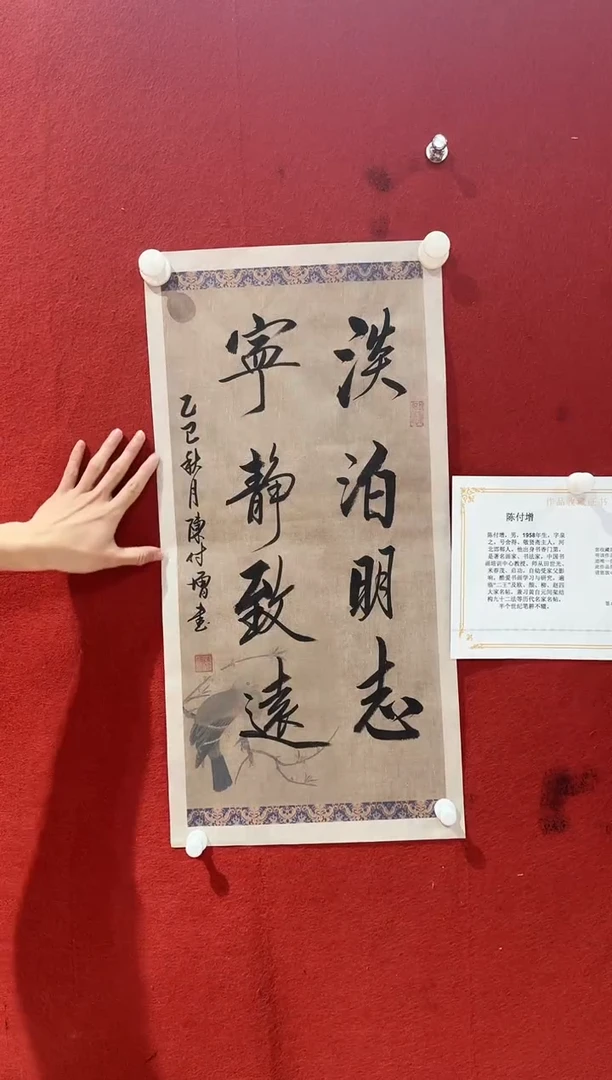 淡泊明志
寧靜致遠
乙巳秋月陳付增書
作品收藏证书
陈付增
陈付增,男,1958年生,字墨
之,号舍得,敬贤斋主人,河
北邯郸人。他出身书香门第,
是著名画家、书法家,中国书
画培训中心教授。师从田世光、
米春茂、启功。自幼受家父影
响,酷爱书画学习与研究。遍
临"二王"及欧、颜、柳、赵四
大家名帖。兼习黄自元间架结
构九十二法等历代名家名帖。
半个世纪笔耕不辍。